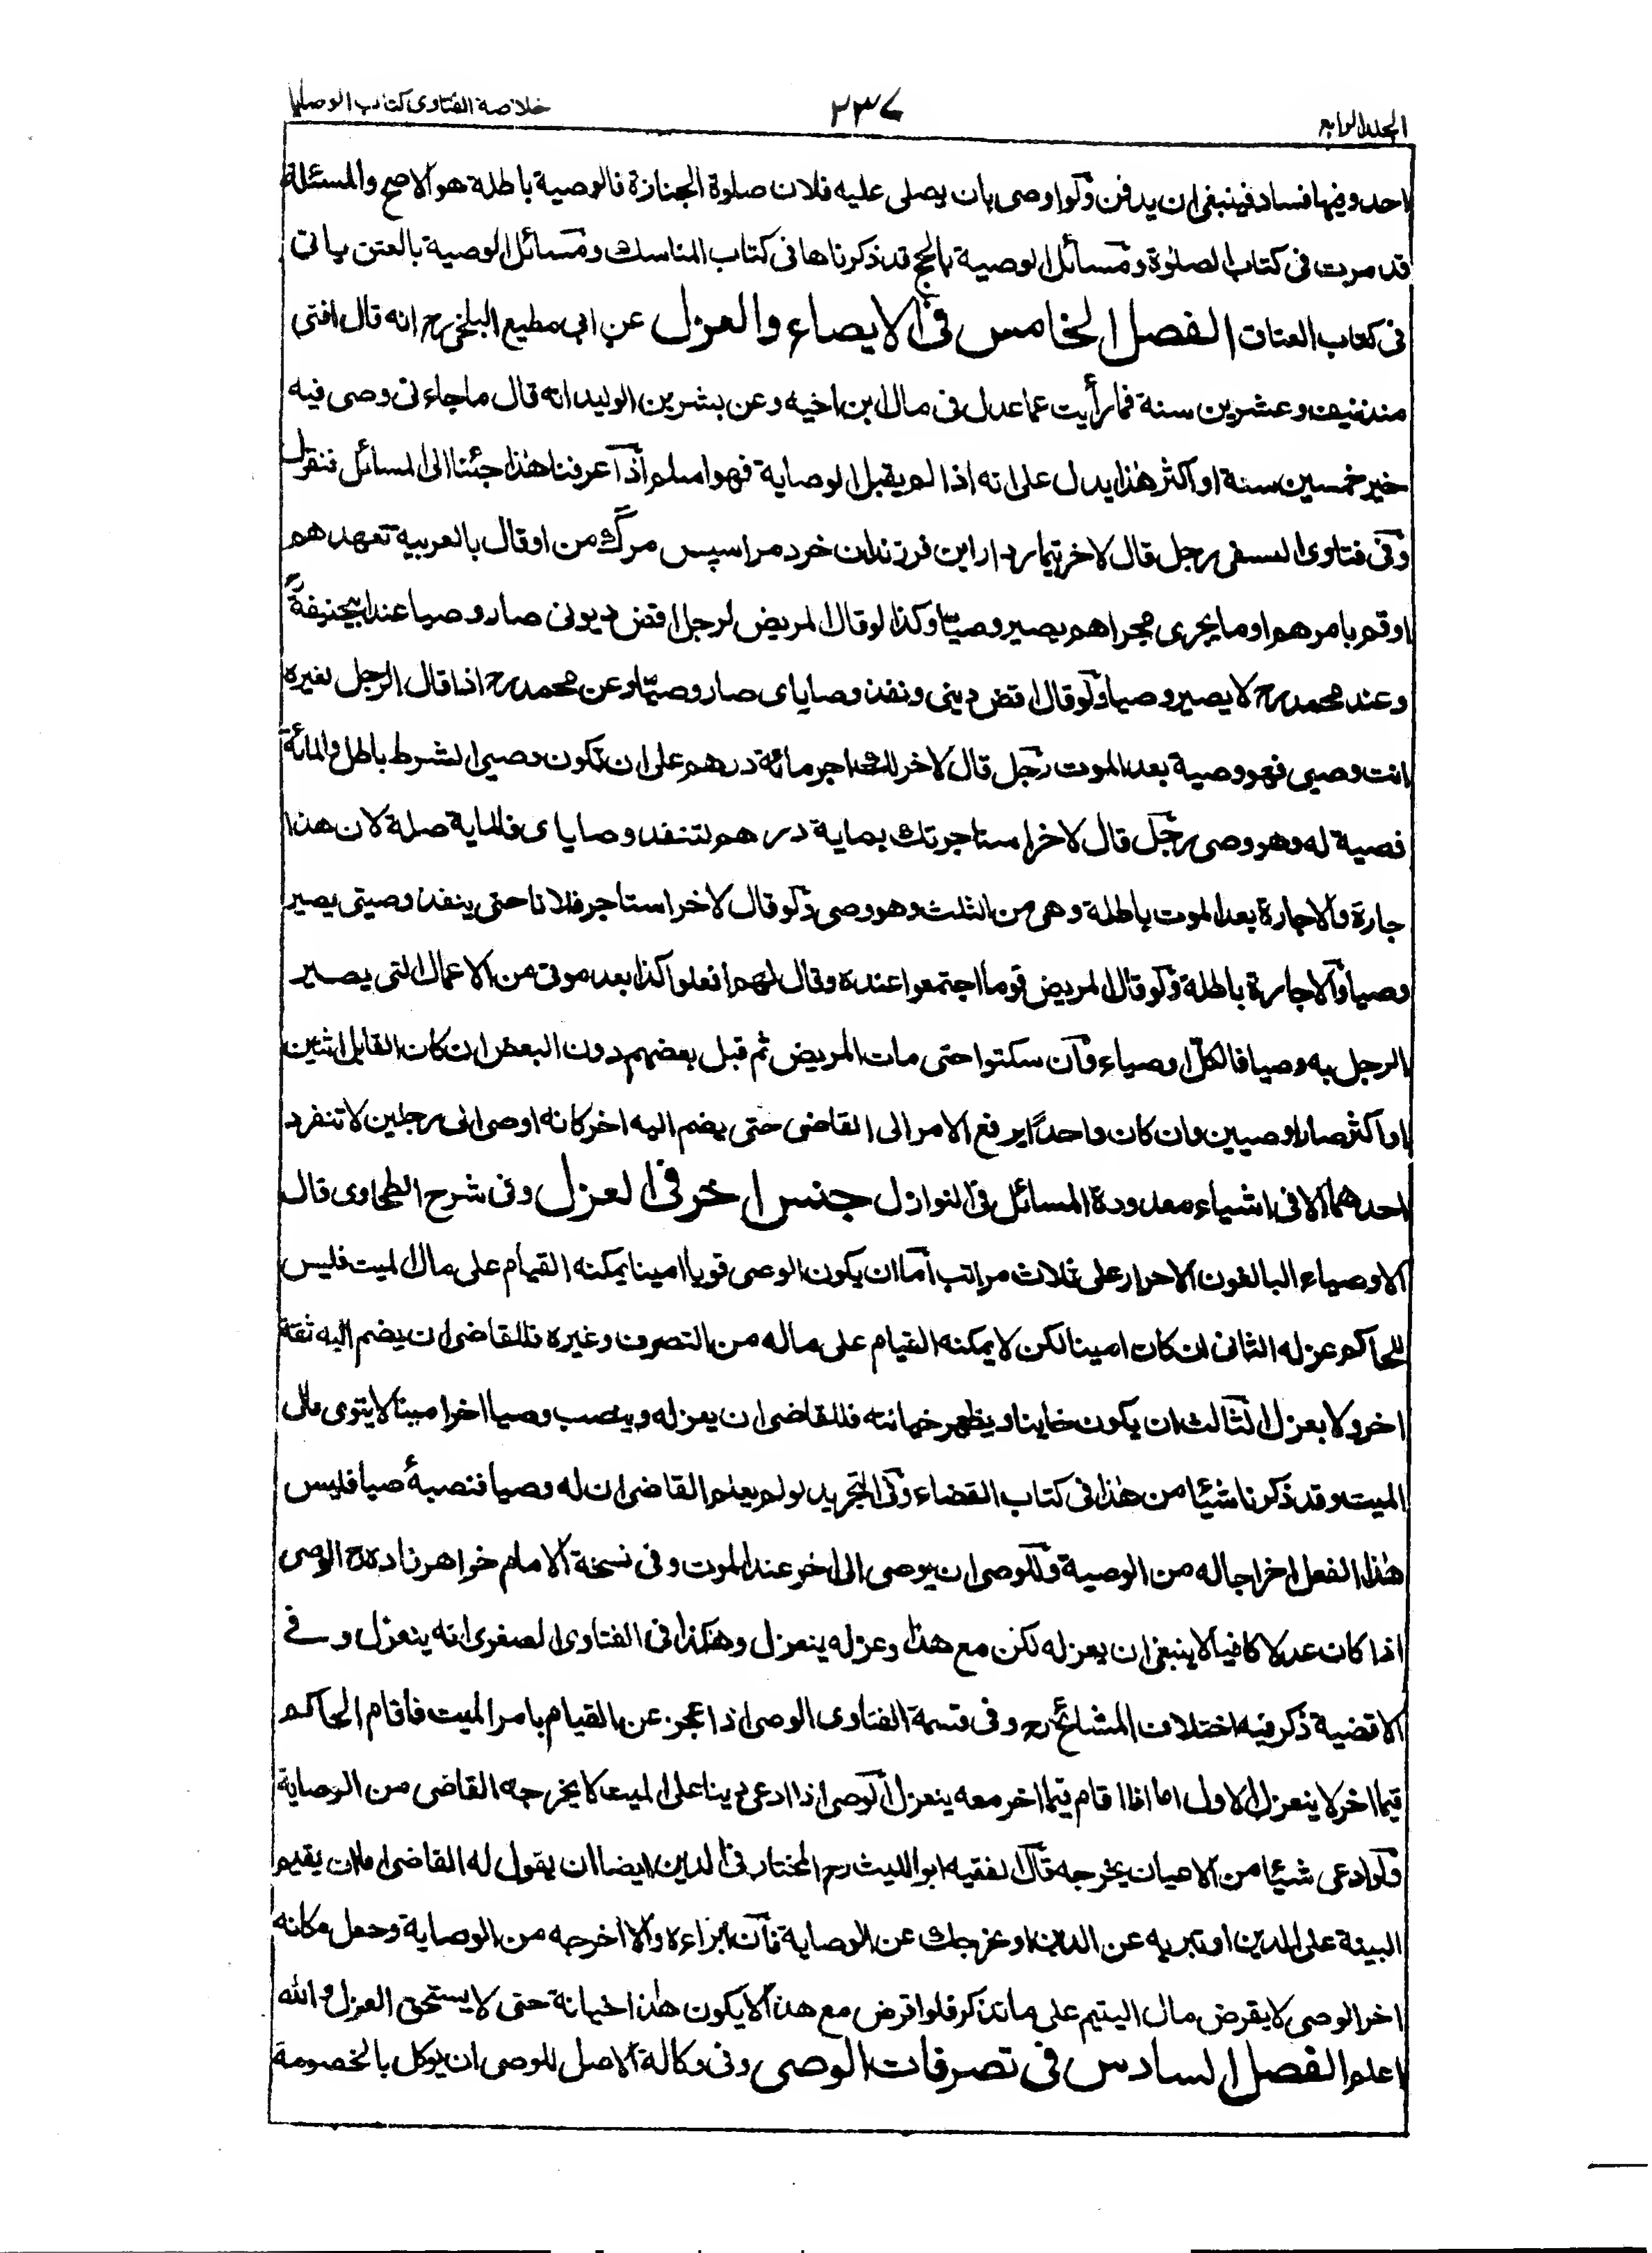 المجلد الرابع
٢٣٧
خلاصة الفتاوى كتاب الوصايا
احد وفيها فساد فينبغى ان يدفن ولو اوصى بان يصلى عليه فلان صلوة الجنازة فالوصية باطلة هو الاصح والمسئلة
قد مرت فى كتاب الصلوة ومسائل الوصية بالحج قد ذكرناها فى كتاب المناسك ومسائل الوصية بالعتق ياتى
فى كتاب العتاق الفصل الخامس فى الايصاء والعزل عن ابى مطيع البلخى رح انه قال افتى
منذ نيف وعشرين سنة فما رأيت عما عدل فى مال ابن اخيه وعن بشر بن الوليد انه قال ما جاءنى وصى فيه
خير خمسين سنة او اكثر هذا يدل على انه اذا لم يقبل الوصاية فهو اسلم اذا عرفنا هذا جئنا الى المسائل فنقول
وفى فتاوى النسفى رجل قال لاخر تيمار دار اين فرزندان خرد مرا سپس مرگ من او قال بالعربية تعهدهم
او قم بامرهم او ما يجرى مجراهم يصير وصيا وكذا لو قال المريض لرجل اقض ديونى صار وصيا عند ابيحنيفة رح
وعند محمد رح لا يصير وصيا ولو قال اقض دينى ونفذ وصاياى صار وصيا وعن محمد رح اذا قال الرجل لغيره
انت وصيى فهو وصية بعد الموت رجل قال لاخر لك اجر مائة درهم على ان تكون وصيى الشرط باطل والمائة
فصية له وهو وصى رجل قال لاخر استاجرتك بماية درهم لتنفد وصاياى فالماية صلة لان هذا
جارة والاجارة بعد الموت باطلة وهى من الثلث وهو وصى ولو قال لاخر استاجر فلانا حتى ينفذ وصيتى يصير
وصيا والاجارة باطلة ولو قال المريض قوما اجتمعوا عنده وقال لهم افعلوا كذا بعد موتى من الاعمال التى يصير
الرجل به وصيا فالكل اوصياء وان سكتوا حتى مات المريض ثم قبل بعضهم دون البعض ان كان القابل اثنين
او اكثر صارا وصيين وان كان واحدا يرفع الامر الى القاضى حتى يضم اليه اخر كانه اوصى الى رجلين لا تنفرد
احدهما الا فى اشياء معدودة المسائل فى النوازل جنس اخر فى العزل وفى شرح الطحاوى قال
الاوصياء البالغون الاحرار على ثلاث مراتب اما ان يكون الوصى قويا امينا يمكنه القيام على مال الميت فليس
للحاكم عزله الثانى ان كان امينا لكن لا يمكنه القيام على ماله من التصرف وغيره فللقاضى ان يضم اليه ثقة
اخر ولا يعزل الثالث ان يكون خاينا ويظهر خيانته فللقاضى ان يعزله وينصب وصيا اخر امينا لا يتوى مال
الميت وقد ذكرنا شيئا من هذا فى كتاب القضاء وفى التجريد لو لم يعلم القاضى ان له وصيا فنصبه وصيا فليس
هذا الفعل اخراجا له من الوصية وللوصى ان يوصى الى اخر عند الموت وفى نسخة الامام خواهر زاده رح الوصى
اذا كان عدلا كافيا لا ينبغى ان يعزله لكن مع هذا وعزله ينعزل وهكذا فى الفتاوى الصغرى انه ينعزل و فى
الاقضية ذكر فيه اختلاف المشايخ رح وفى قسمة الفتاوى الوصى اذا عجز عن القيام بامر الميت فاقام الحاكم
قيما اخر لا ينعزل الاول اما اذا اقام قيما اخر معه ينعزل الوصى اذا ادعى دينا على الميت لا يخرجه القاضى من الوصاية
ولو ادعى شيئا من الاعيان يخرجه قال الفقيه ابو الليث رح المختار فى الدين ايضا ان يقول له القاضى اما ان يقيم
البينة على الدين او تبريه عن الدين او عزجلك عن الوصاية فان ابراءه والا اخرجه من الوصاية وجعل مكانه
اخر الوصى لا يقرض مال اليتيم على ما تذكر فلو اقرض مع هذا لا يكون هذا خيانة حتى لا يستحق العزل والله
اعلم الفصل السادس فى تصرفات الوصى وفى وكالة الاصل للوصى ان يوكل بالخصومة